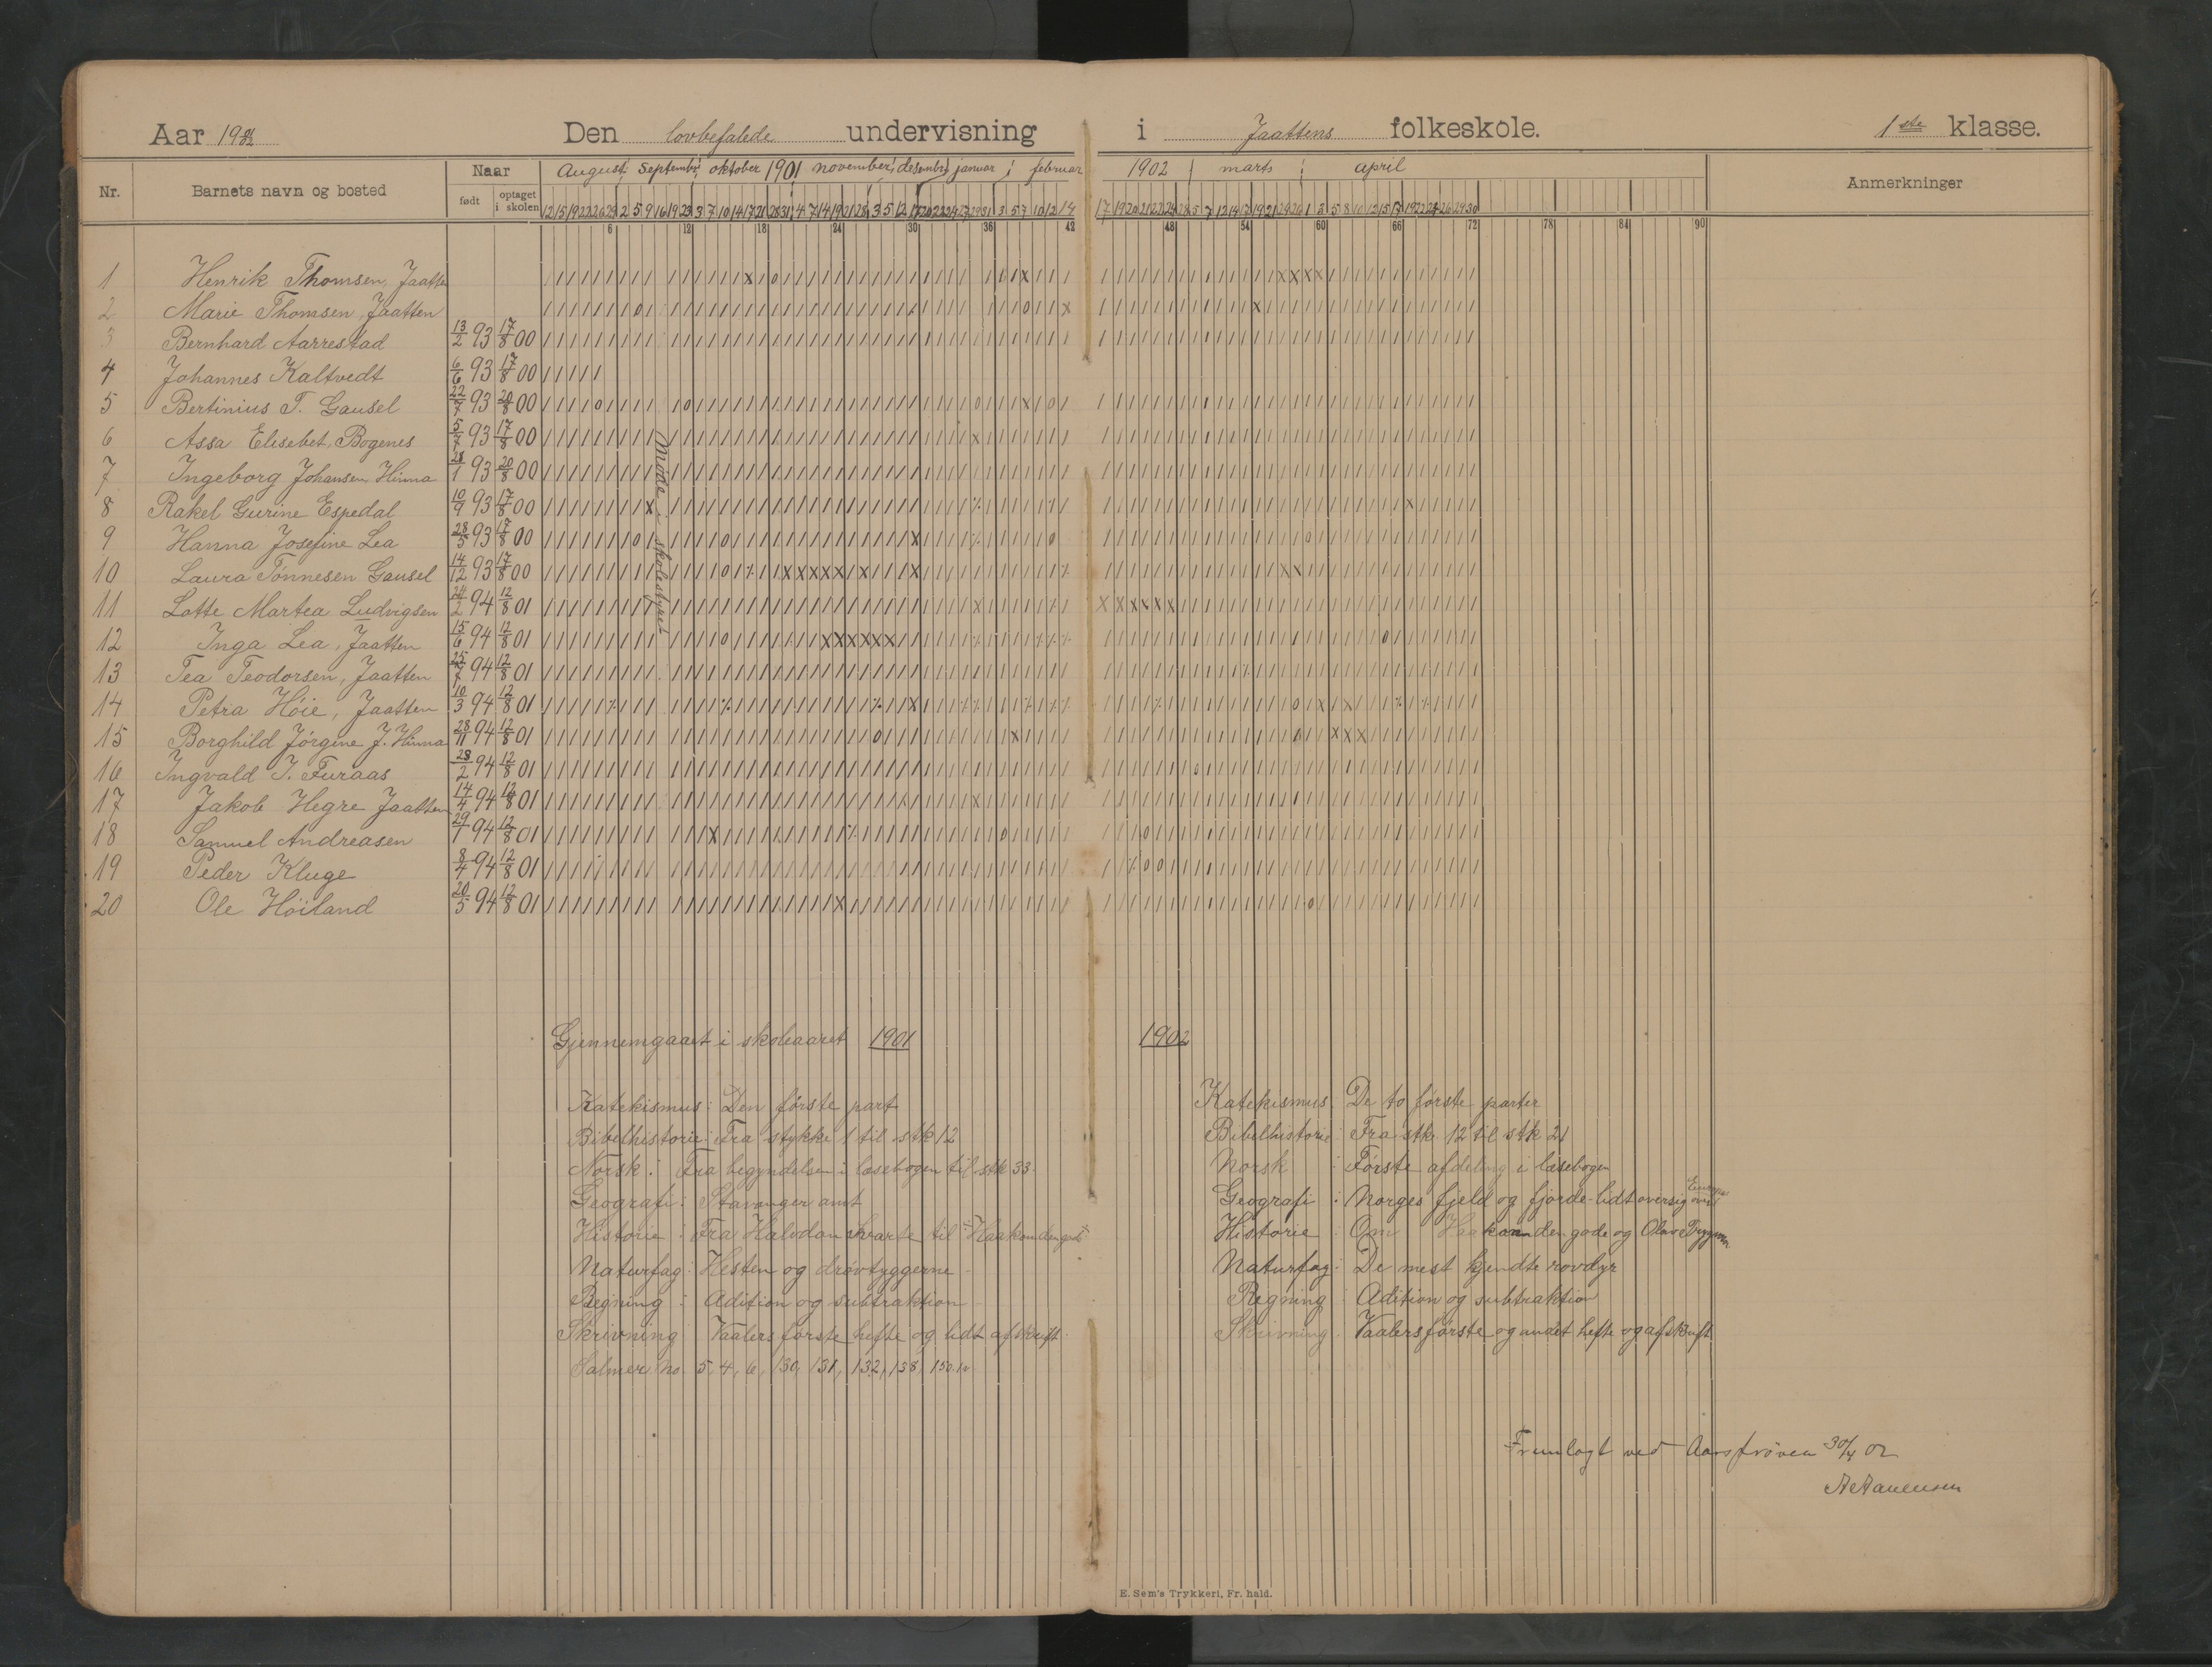 Aar 19 01/02 Den lovbefalede undervisning i Jaattens folkeskole. 1ste klasse.
Nr. Barnets navn og bosted Naar født optaget i skolen August Septembr oktober 1901 november desembr januar februar 1902 marts april Anmerkninger
6 12 18 24 30 36 42 48 54 60 66 72 78 84 90
1 Henrik Thomsen, Jaatten
2 Marie Thomsen, Jaatten
3 Bernhard Aarrestad 13/2 93 17/8 00
4 Johannes Kaltvedt 6/6 93 17/8 00
5 Bertinius T. Gausel 22/7 93 20/8 00
6 Assa Elisebet Bogenes 5/7 93 17/8 00
7 Ingeborg Johansen Hinna 28/1 93 20/8 00
8 Rakel Gurine Espedal 10/9 93 17/8 00
9 Hanna Josefine Lea 28/5 93 17/8 00
10 Laura Tønnesen Gausel 14/12 93 17/8 00
11 Lotte Martea Ludvigsen 24/2 94 12/8 01
12 Inga Lea, Jaatten 15/6 94 12/8 01
13 Tea Teodorsen, Jaatten 25/7 94 12/8 01
14 Petra Høie, Jaatten 10/3 94 12/8 01
15 Borghild Jørgine J. Hinna 28/11 94 12/8 01
16 Ingvald T. Furaas 28/2 94 12/8 01
17 Jakob Hegre Jaatten 14/4 94 12/8 01
18 Samuel Andreasen 29/1 94 12/8 01
19 Peder Kluge 8/4 94 12/8 01
20 Ole Höiland 20/5 94 12/8 01
Møde i skolestyret
Gjennemgaaet i skoleaaret 1901
Katekismus: Den første part
Bibelhistorie: Fra stykke 1 til stk 12
Norsk: Fra begyndelsen i læsebogen til stk 33
Geografi: Stavanger amt
Historie: Fra Halvdan svarte til "Haakon den gode"
Naturfag: Hesten og drøvtyggerne
Regning: Adition og subtraktion
Skrivning Vaalers første hefte og lidt afskrift
Salmer No. 5, 4, 6, 130, 131, 132, 138, 150.
1902
Katekismus: De to første parter
Bibelhistorie: Fra stk. 12 til stk 21
Norsk: Første afdeling i læsebogen
Geografi: Norges fjeld og fjorde - lidt oversigt over Europa
Historie: Om Haakon den gode og Olav Trygvason
Naturfag: De mest kjendte rovdyr
Regning Adition og subtraktion
Skrivning Vaalers første og andet hefte og afskrift
Fremlagt ved Aarsprøven 30/4 02
E. Sem's Trykkeri, Fr. hald.